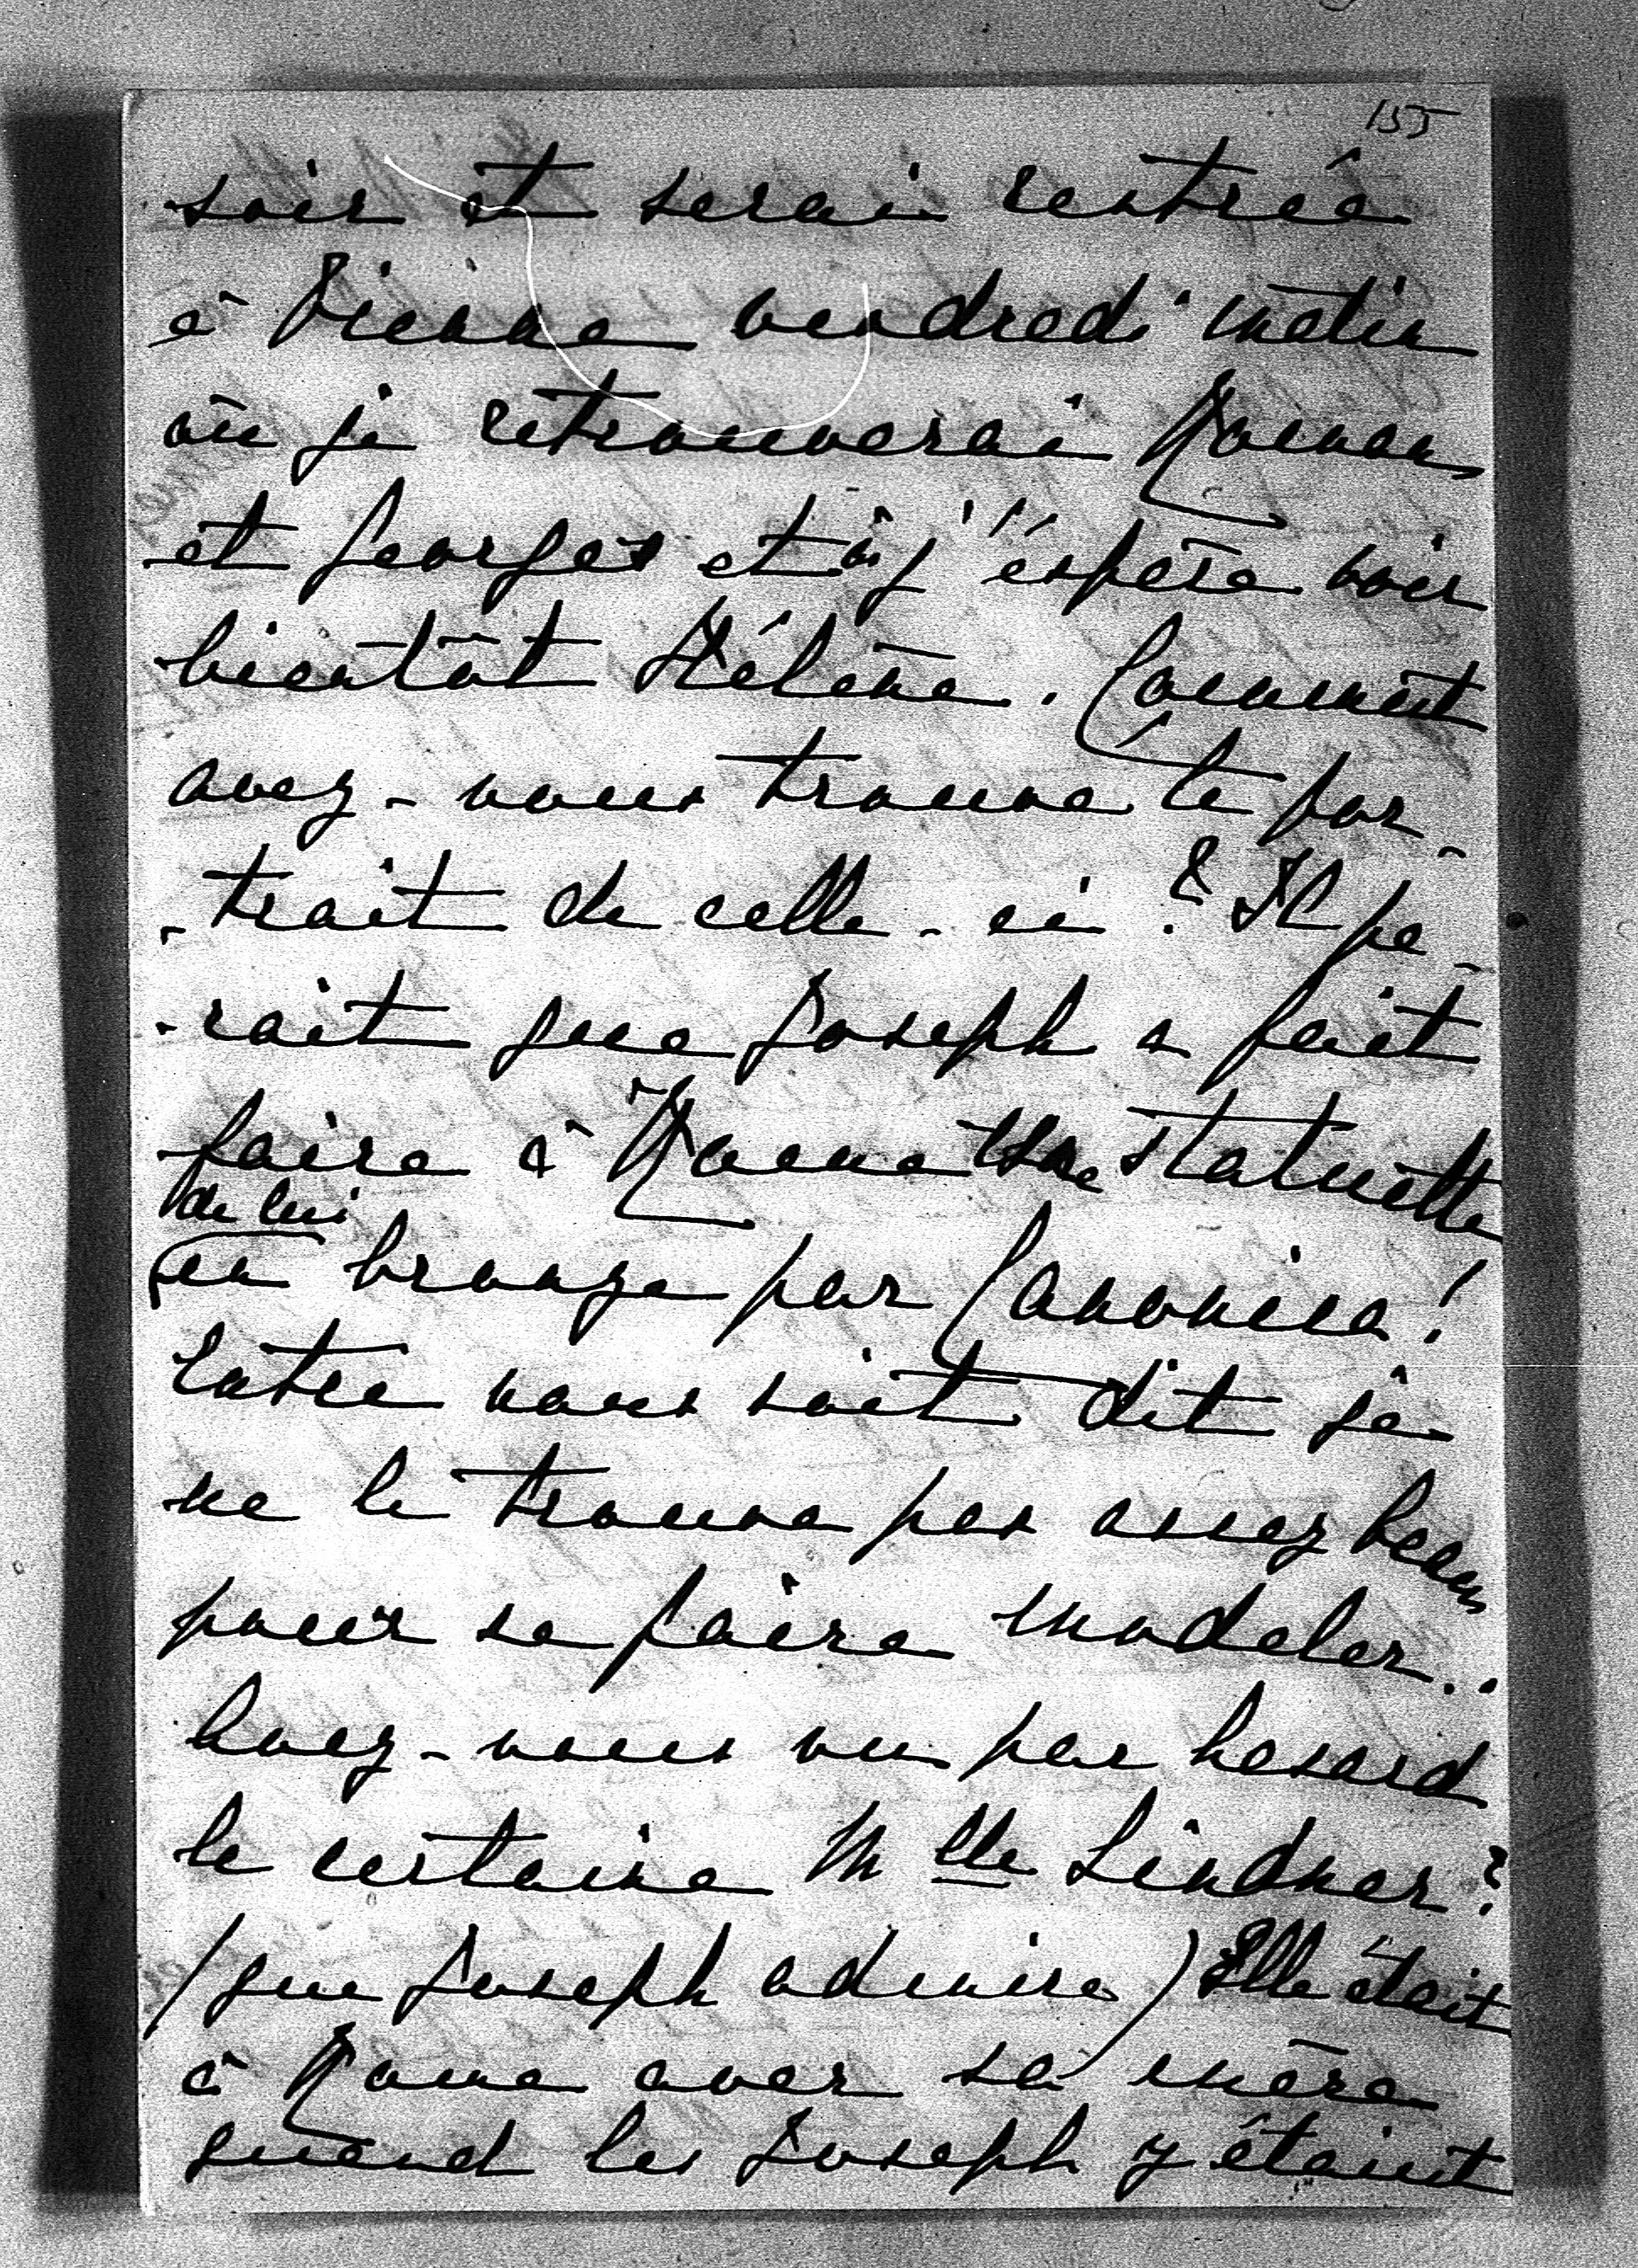 155
soir et serai rentrée
à Vienne vendredi matin
où je retrouverai Roman
et Georges et où j'éspère voir
bientôt Hélène. Comment
avez-vous trouvé le por-
-trait de celle-ci? Il pa-
-rait que Joseph a fait
faire à Rome une statuette
de lui
en bronze par Canonica!
Entre nous soit dit je
ne le trouve pas assez beau
pour se faire modeler..
Avez-vous vu par hasard
la certaine Mlle Lindner?
(que Joseph admire) Elle était
à Rome avec sa mère
quand les Joseph y étaient